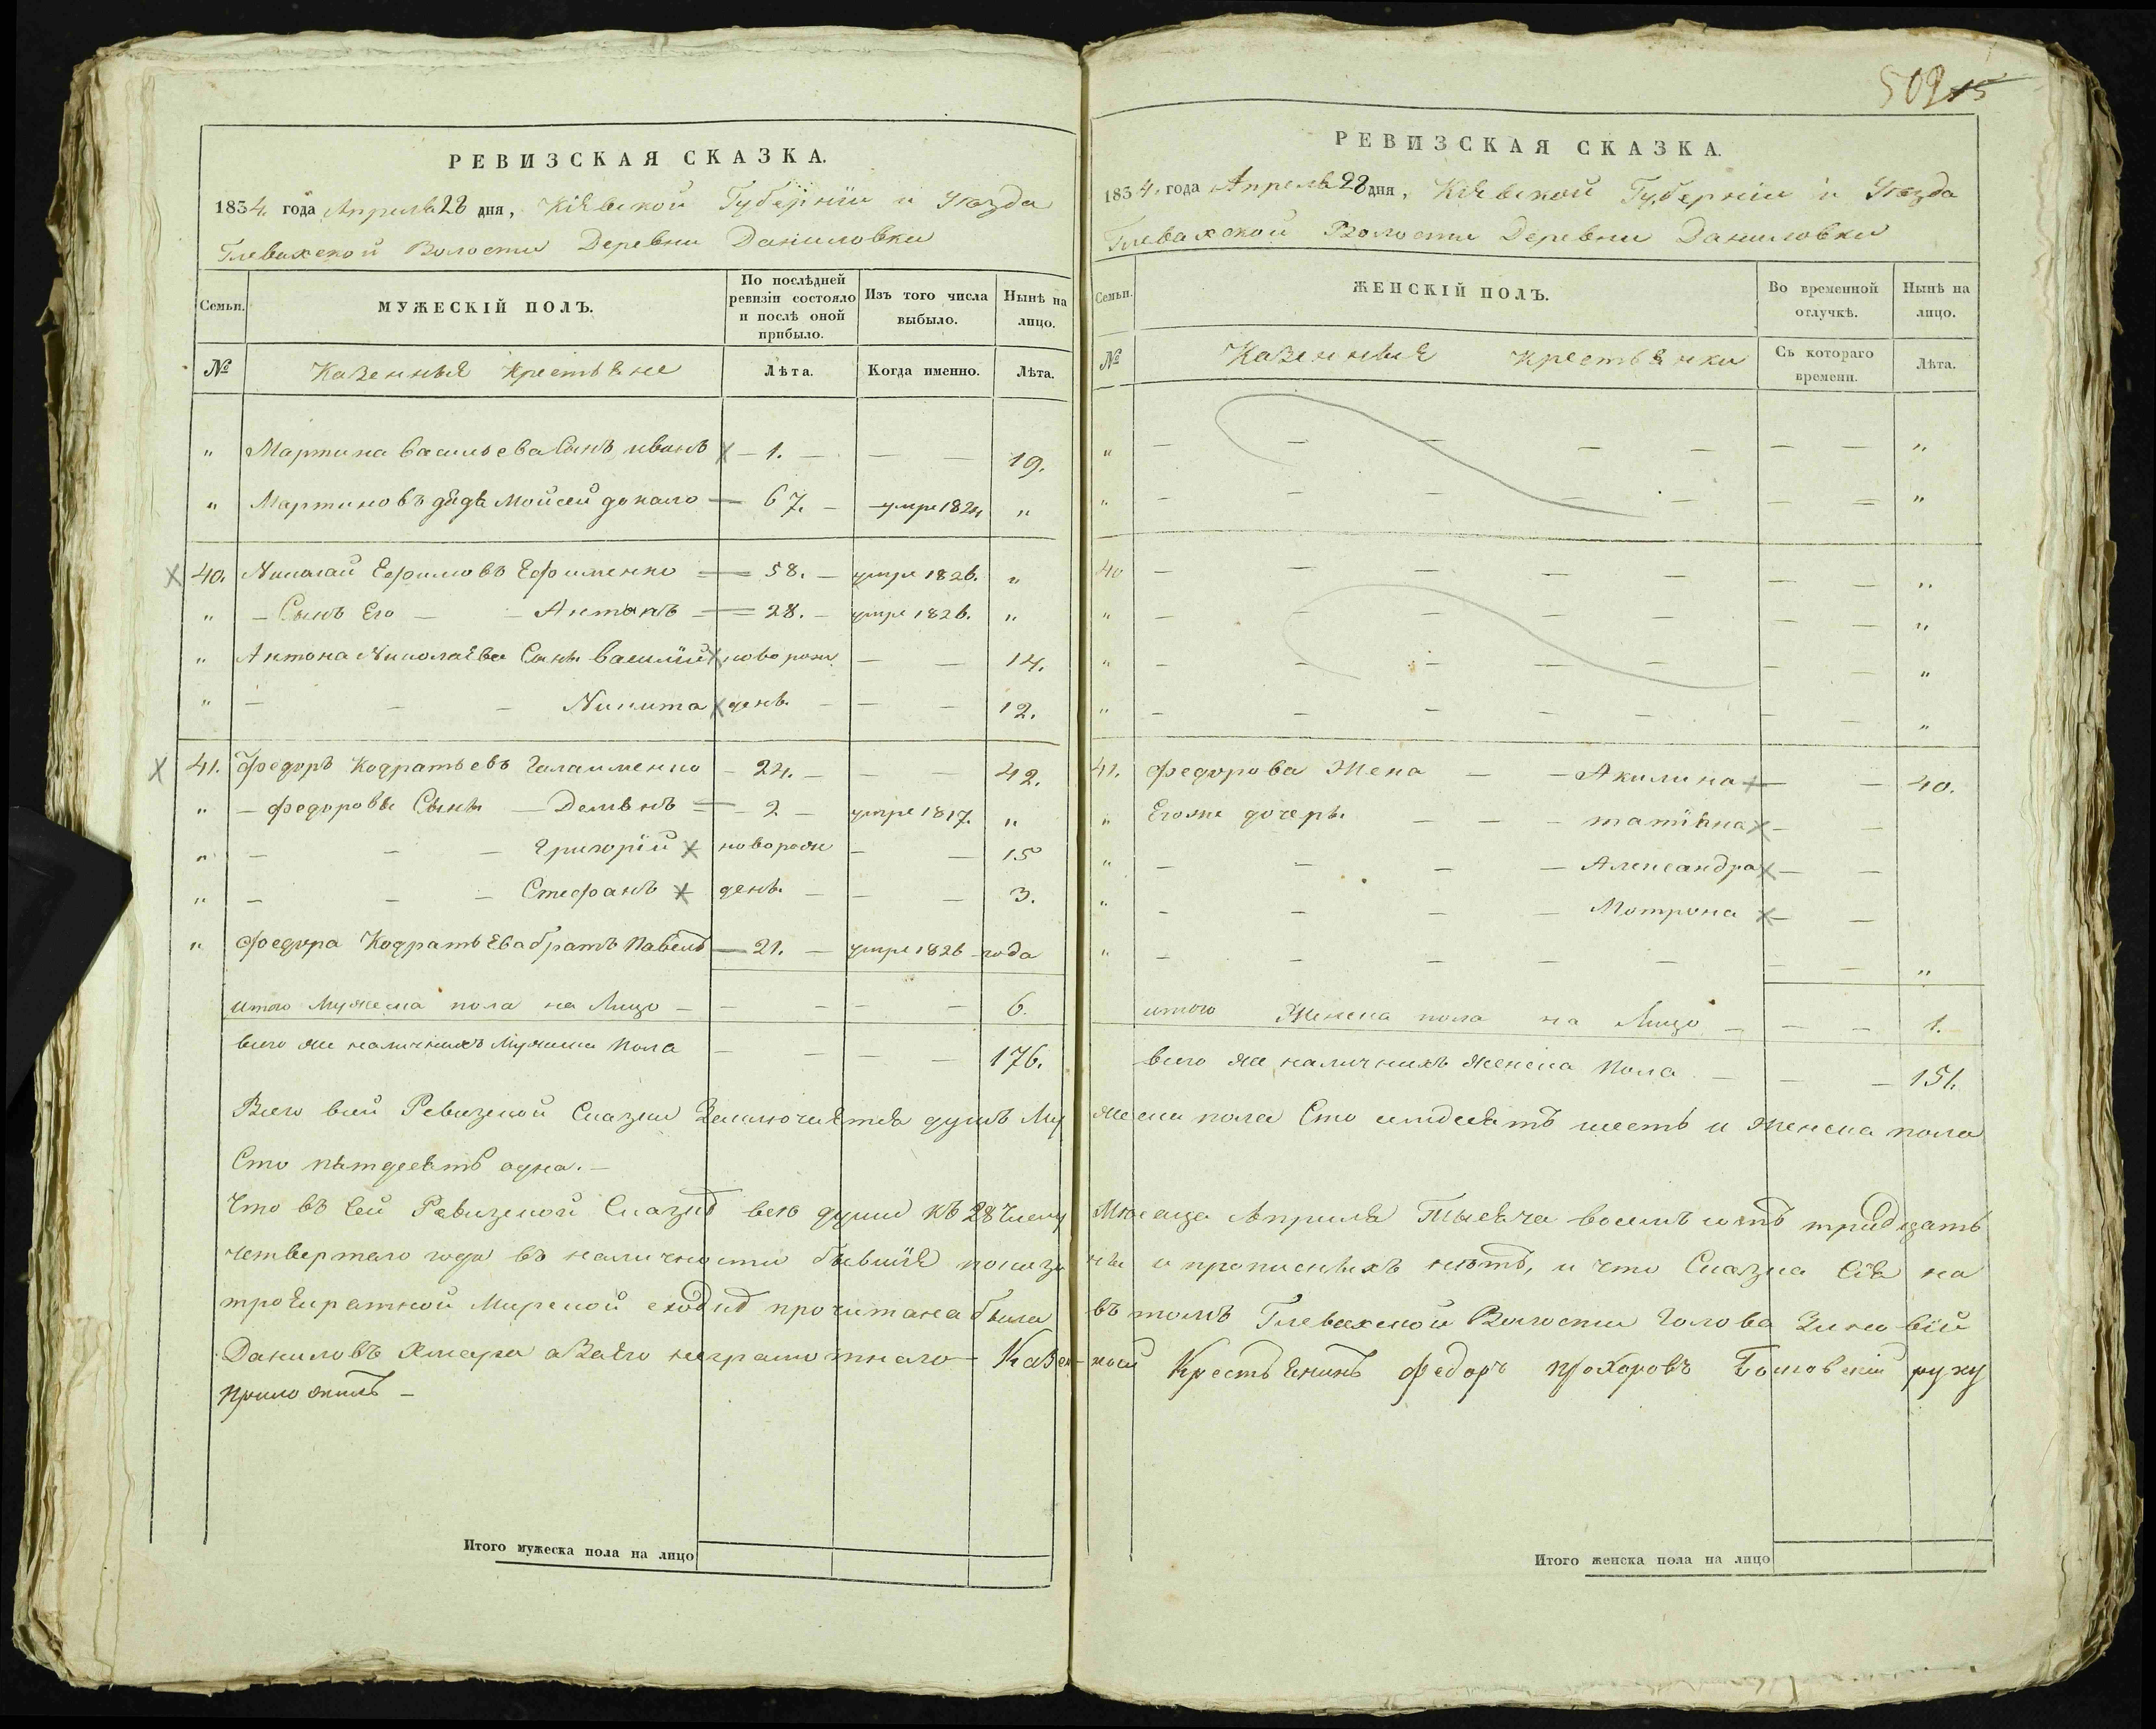 РЕВИЗСКАЯ СКАЗКА.
1834 года Апреля 28 дня, Кіевской Губерніи и Уезда
Глевахской Волости Деревни Даниловки
Семьи.
МУЖЕСКІЙ ПОЛЪ.
По послѣдней ревизіи состояло и послѣ оной прибыло.
Изъ того числа выбыло.
Нынѣ на лицо.
№ Казенные Крестьяне Лѣта. Когда именно. Лѣта.
" Мартина васильева Сынъ иванъ — 1. — — — 19.
" Мартиновъ дядя Мойсей — 67. — умре 1824 "
40. Николай Ефимовъ Ефименко — 58. — умре 1826. "
" — Сынъ Его — — Антонъ — 28. — умре 1826. "
" Антона Николаева Сынъ василій новорож — — 14.
" — — — Никита денъ — — — 12.
41. Федоръ Кодратьевъ Галаименко — 24. — — — 42.
" — федоровы Сыны — Демьянъ — 2 — умре 1817. "
" — — — Григорій новорож — — 15
" — — — Стефанъ денъ — — — 3.
" Федора Кодратьева братъ Павелъ — 21. — умре 1826 года
итого Мужеска пола на Лицо — — — — — 6.
всего же наличныхъ Мужеска Пола — — — — 176.
Всего в сей Ревизской Сказки Заключается душъ Му
Сто пятдесятъ одна. —
Что въ сей Ревизской Сказкѣ все души къ 28 Числу
четвертаго года въ наличности бывшіе показа
троекратной Мирской сходкѣ прочитана была
Даниловъ Хмара а За его неграмотнаго — Казен-
приложилъ —
Итого мужеска пола на лицо
509 15
РЕВИЗСКАЯ СКАЗКА.
1834 года Апреля 28 дня, Кіевской Губерніи и Уезда
Глевахской Волости Деревни Даниловки
Семьи.
ЖЕНСКІЙ ПОЛЪ.
Во временной отлучкѣ.
Нынѣ на лицо.
№ Казенныя крестьянки Съ котораго времени. Лѣта.
" — — — — — — — "
" — — — — — — — "
40 — — — — — — "
" — — — — — — "
" — — — — — — "
" — — — — — — "
41. федорова Жена — — Акилина — — 40.
" Егоже дочеръ — — — татіяна — —
" — — — — Александра — —
" — — — — Мотрона — —
" — — — — — — — "
итого Женска пола на Лицо — — — 1.
всего же наличныхъ Женска Пола — — — 151.
жеска пола Сто семдесятъ шесть и женска пола
Месяца Апреля Тысяча восемъ сотъ тридцать
ны и прописныхъ нетъ, и что Сказка Сія на
въ томъ Глевахской Волости Голова Зиновій
ной Крестьянинъ Федоръ Прохоровъ руку
Итого женска пола на лицо